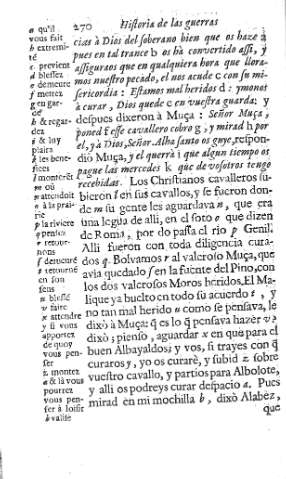 270 Historia de las guerras
cias à Dios del soberano bien que os haze a
pues en tal trance b os hà convertido assi, y
asseguraos que en qualquiera hora que llora-
mos nuestro pecado, el nos acude c con su mi-
sericordia : Estamos mal heridos d : ymonos e
à curar, Dios quede c en vuestra guarda: y
despues dixeron à Muça : Señor Muça,
poned f esse cavallero cobro g, y mirad h por
el, y à Dios, Señor, Alha santo os guye, respon-
diò Muça, y el querrà i que algun tiempo os
pague las mercedes k que de vosotros tengo
recebidas. Los Christianos cavalleros su-
bieron l en sus cavallos, y se fueron don-
de m su gente les aguardava n, que era
una legua de alli, en el soto o que dizen
de Roma, por do passa el rio p Genil.
Alli fueron con toda diligencia cura-
dos q. Bolvamos r al valeroso Muça, que
avia quedado s en la fuente del Pino, con
los dos valerosos Moros heridos. El Ma-
lique ya buelto en todo su acuerdo t, y
no tan mal herido u como se pensava, le
dixò à Muça: q̃ es lo q̃ pensava hazèr v?
dixò; pienso, aguardar x en què para el
buen Albayaldos; y vos, si trayes con q̃
curaros y, yo os curarè, y subid z sobre
vuestro cavallo, y partios para Albolote,
y alli os podreys curar despacio a. Pues
mirad en mi mochilla b, dixò Alabèz,
que
a qu'il
vous fait
b extremi-
té
c previent
d blessez
e demeure
f mettez
g en gar-
de
h & regar-
dez
i & luy
plaira
k les bene-
fices
l montérèt
m où
n attendoit
o à la prai-
rie
p la riviere
q pensez
r retour-
nons
s demeuré
t retourné
en son
sens
u blessé
v faire
x attendre
y si vous
apportez
de quoy
vous pen-
ser
z montez
a & là vous
pourrez
vous pen-
ser à loisir
b valise